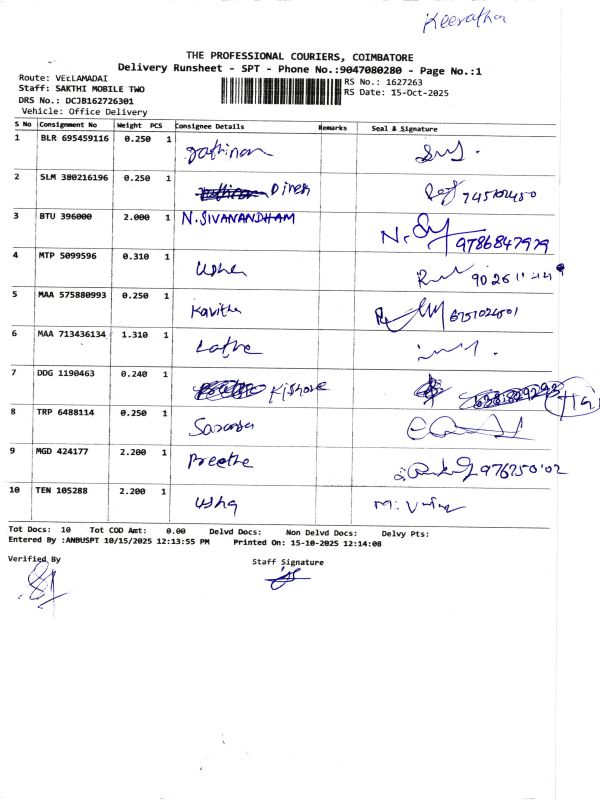 Keerathu
THE PROFESSIONAL COURIERS, COIMBATORE
Delivery Runsheet - SPT - Phone No.:9047080280 - Page No.:1
Route: VELLAMADAI
RS No.: 1627263
Staff: SAKTHI MOBILE TWO
RS Date: 15-Oct-2025
DRS No.: DCJB162726301
Vehicle: Office Delivery
S No Consignment No Weight PCS Consignee Details Remarks Seal & Signature
1 BLR 695459116 0.250 1
2 SLM 380216196 0.250 1 Dinesh
3 BTU 396000 2.000 1 N.SIVANANDHAM 9786847979
4 MTP 5099596 0.310 1 Usha
5 MAA 575880993 0.250 1 Kavitha
6 MAA 713436134 1.310 1 Latha
7 DDG 1190463 0.240 1 Kishore
8 TRP 6488114 0.250 1
9 MGD 424177 2.200 1 Preetha
10 TEN 105288 2.200 1 Usha
Tot Docs: 10 Tot COD Amt: 0.00 Delvd Docs: Non Delvd Docs: Delvy Pts:
Entered By :ANBUSPT 10/15/2025 12:13:55 PM Printed On: 15-10-2025 12:14:08
Verified By Staff Signature